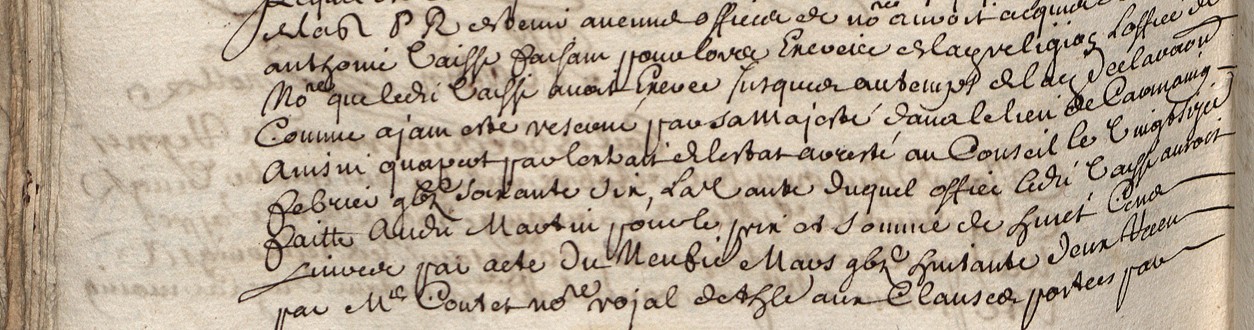 de la R. P. R. et devenu avenue office de no.re auroit acquis
anthoine Vaisse faisant pour lors Exercice de lad religion Loffice de
No.re que ledit Vaisse avoit Exercé Jusques au temps de la
Comme ayant esté reservé par sa Majesté dans le lieu de Caramaing
Ainsin quapert par lextrait de lestat arresté au Conseil le Vingt sixie
febvrier gbz soixante six, La Vante duquel office ledit Vaisse auroit
faitte Andre Martin pour le prix et Somme de huict Cens
Livres par acte du Neufvie Mars gbz huitante deux Receu
par Me Contet no.re royal de Thle aux Clauses portees par